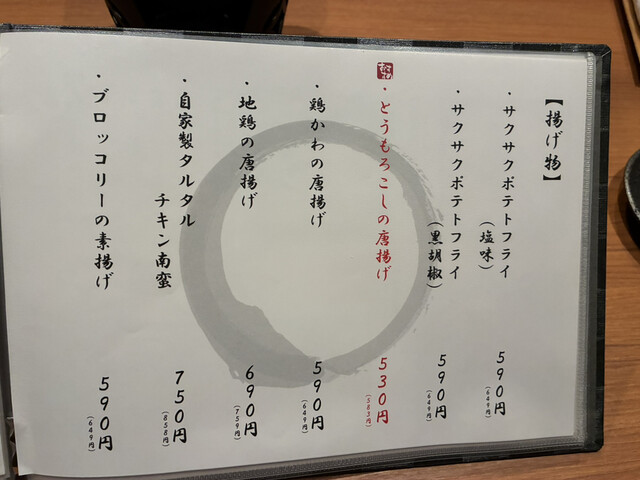 【揚げ物】
・サクサクポテトフライ
(塩味)
590円
(649円)
・サクサクポテトフライ
(黒胡椒)
590円
(649円)
・とうもろこしの唐揚げ
530円
(583円)
・鶏かわの唐揚げ
590円
(649円)
・地鶏の唐揚げ
690円
(759円)
・自家製タルタル
チキン南蛮
750円
(858円)
・ブロッコリーの素揚げ
590円
(649円)